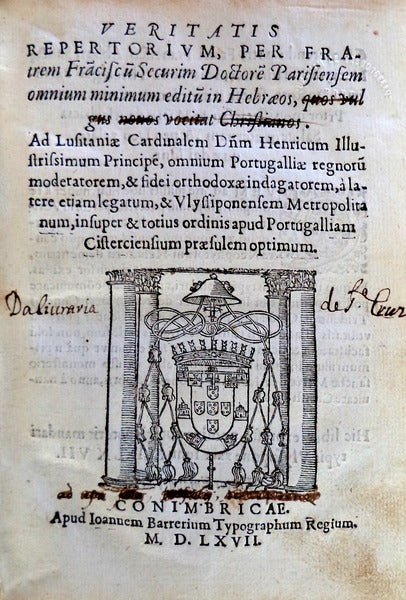 VERITATIS
REPERTORIVM, PER FRA-
trem Frãciscũ Securim Doctorẽ Parisiensem
omnium minimum editũ in Hebræos, quos vul
gus nouos vocitat Christianos.
Ad Lusitaniæ Cardinalem Dñm Henricum Illu-
strissimum Principẽ, omnium Portugalliæ regnorũ
moderatorem, & fidei orthodoxæ indagatorem, à la-
tere etiam legatum, & Vlyssiponensem Metropolita
num, insuper & totius ordinis apud Portugalliam
Cisterciensium præsulem optimum.
Da liuraria de Sta Cruz
CONIMBRICAE.
Apud Ioannem Barrerium Typographum Regium.
M. D. LXVII.